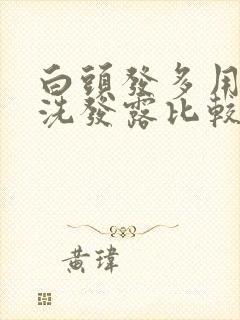 白頭發多用
洗發露比較
黃瑋